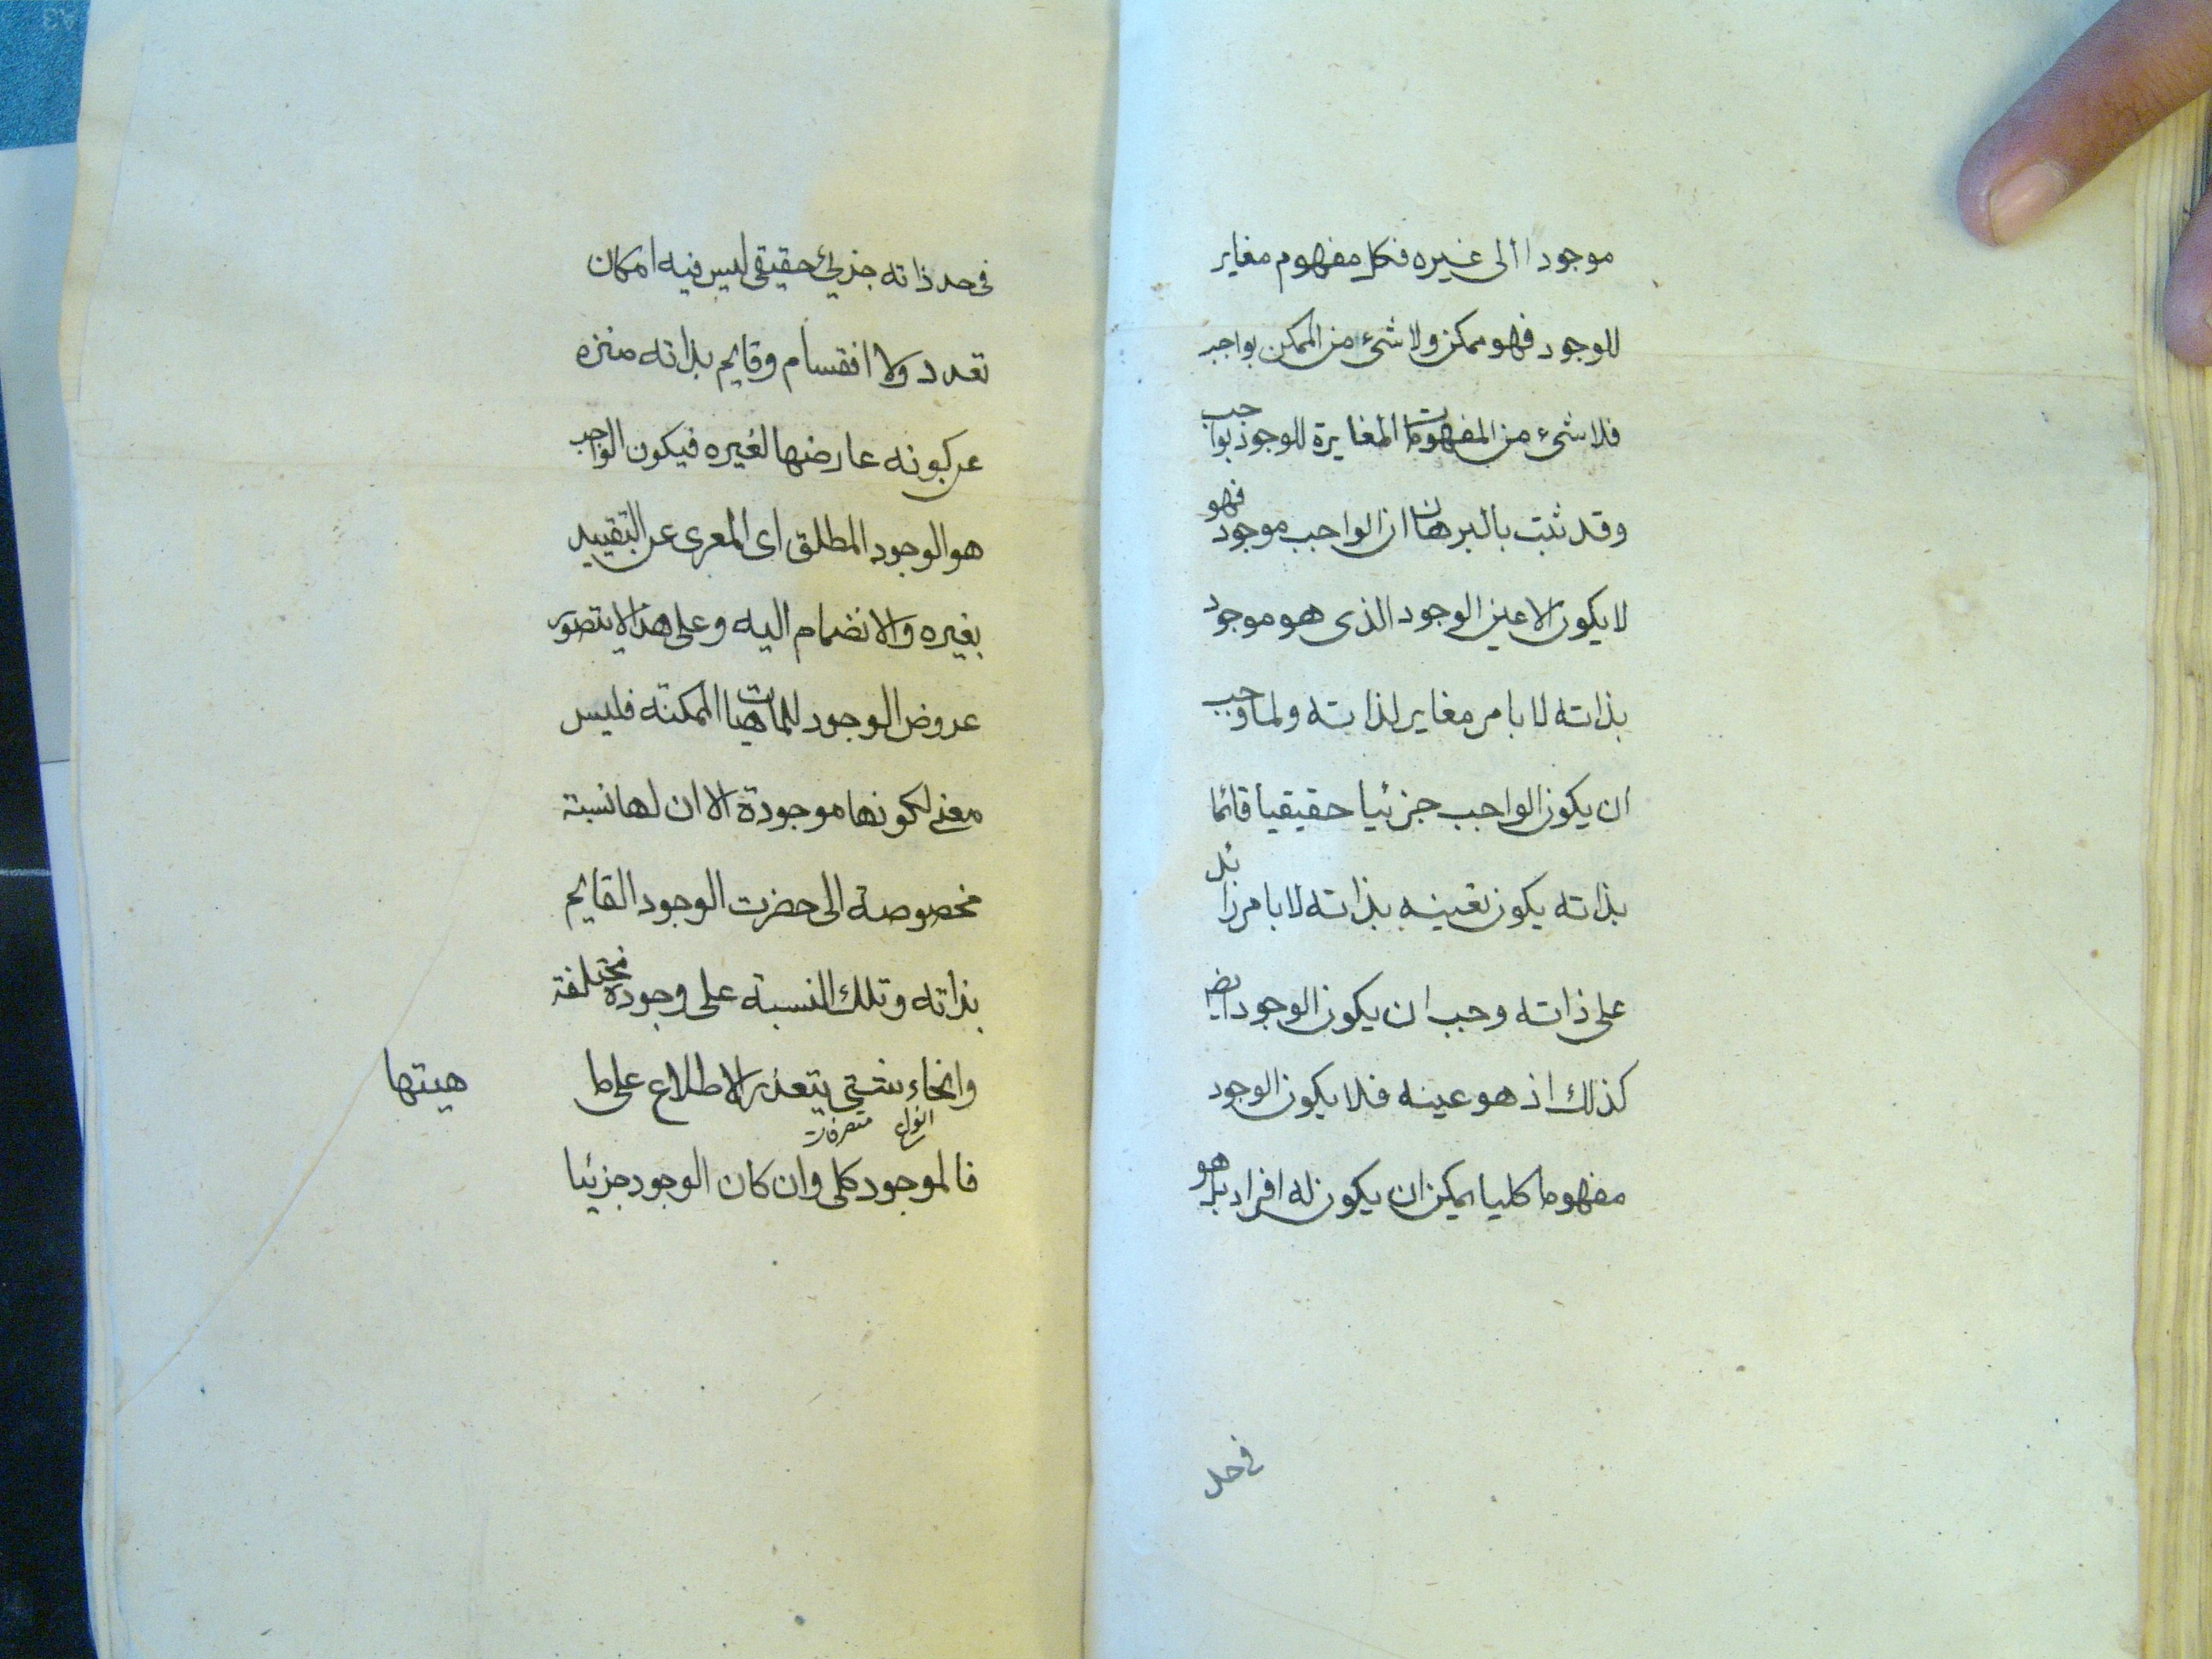 موجودا الى غيره فكل مفهوم مغاير
للوجود فهو ممكن ولا شىء من الممكن بواجب
فلا شىء من المفهومات المغايرة للوجود بواجب
وقد ثبت بالبرهان ان الواجب موجود فهو
لا يكون الا عين الوجود الذى هو موجود
بذاته لا بامر مغاير لذاته ولما وجب
ان يكون الواجب جزئيا حقيقيا قائما
بذاته يكون تعينه بذاته لا بامر زائد
على ذاته وجب ان يكون الوجود ايضا
كذلك اذ هو عينه فلا يكون الوجود
مفهوما كليا يمكن ان يكون له افراد بل هو
فى حد
فى حد ذاته جزئي حقيقى ليس فيه امكان
تعدد ولا انقسام وقايم بذاته منزه
عن كونه عارضها لغيره فيكون الواجب
هو الوجود المطلق اى المعرى عن التقييد
بغيره والانضمام اليه وعلى هذا لا يتصور
عروض الوجود للماهيات الممكنة فليس
معنى لكونها موجودة الا ان لها نسبة
مخصوصة الى حضرت الوجود القايم
بذاته وتلك النسبة على وجوده مختلفة
وانحاء شتى يتعذر الاطلاع على ما هيتها
انواع متفرقات
فالموجود كلى وان كان الوجود جزئيا